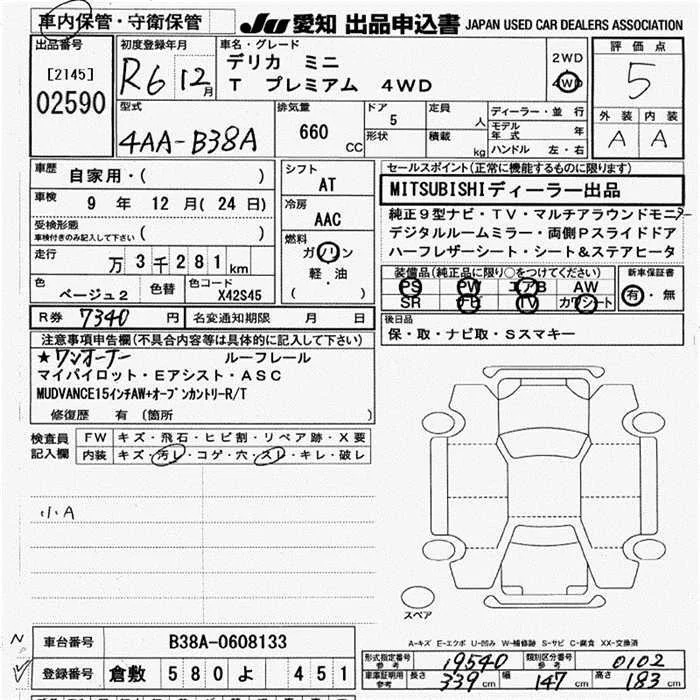 車内保管・守衛保管 JU 愛知 出品申込書 JAPAN USED CAR DEALERS ASSOCIATION
出品番号
[2145]
02590
初度登録年月
R6 12月
車名・グレード
デリカ ミニ
T プレミアム 4WD
2WD
4WD
評価点
5
外装 内装
A A
型式
4AA-B38A
排気量
660
CC
ドア
5
形状
定員
人
積載
kg
ディーラー・並行
モデル年式 年
ハンドル 左・右
車歴
自家用・( )
車検
9 年 12 月(24 日)
受検形態
車検付きのみ記入して下さい ( )
走行
万 3千281km
色
ベージュ2
色替
色コード
X42S45
シフト
AT
冷房
AAC
燃料
ガソリン
軽・油
( )
セールスポイント(正常に機能するものに限ります)
MITSUBISHIディーラー出品
純正9型ナビ・TV・マルチアラウンドモニター
デジタルルームミラー・両側Pスライドドア
ハーフレザーシート・シート&ステアヒータ
装備品(純正品に限り○をつけてください)
PS PW エアB AW
SR ナビ TV カワシート
新車保証書
有・無
R券 7340 円 名変通知期限 月 日
後日品
保・取・ナビ取・Sスマキー
注意事項申告欄(不具合内容等は具体的に記入して下さい)
★ワンオーナー ルーフレール
マイパイロット・Eアシスト・ASC
MUDVANCE15インチAW+オープンカントリーR/T
修復歴 有(箇所
検査員
記入欄
FW キズ・飛石・ヒビ割・リペア跡・X要
内装 キズ・汚レ・コゲ・穴・スレ・キレ・破レ
小A
スペア
A-キズ E-エクボ U-凹み W-補修跡 S-サビ C-腐食 XX-交換済
N
車台番号 B38A-0608133
登録番号 倉敷 580よ 451
形式指定番号
参考
19540
類別区分番号
参考
0102
車庫証明用
参考
長さ 339cm 幅 147cm 高さ 183cm